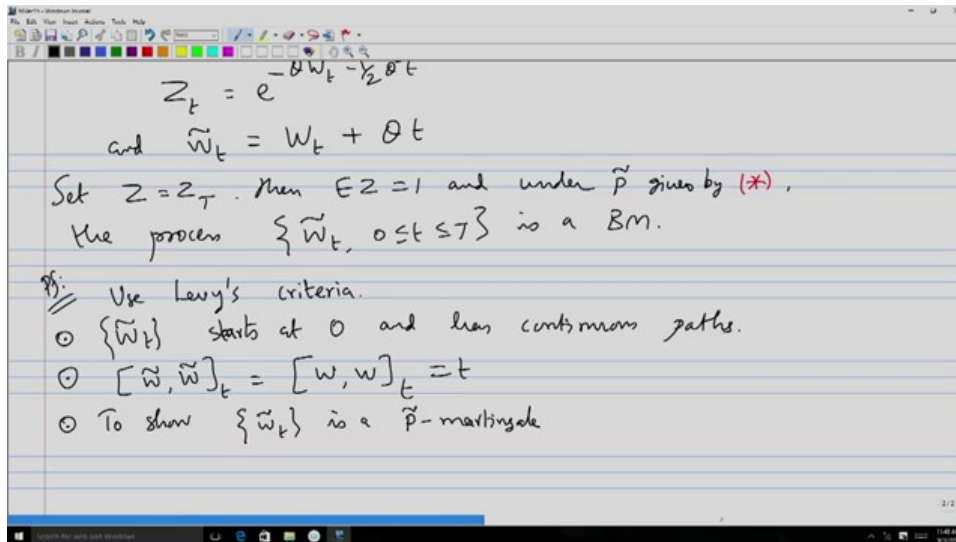 File Edit View Insert Actions Tools Help
Z_t = e^{-θW_t - 1/2 θ^2 t}
and W̃_t = W_t + θt
Set Z = Z_T. Then EZ = 1 and under P̃ given by (*),
the process {W̃_t, 0≤t≤T} is a BM.
Pf:
Use Levy's criteria.
⊙ {W̃_t} starts at 0 and has continuous paths.
⊙ [W̃, W̃]_t = [W, W]_t = t
⊙ To show {W̃_t} is a P̃-martingale
2/2